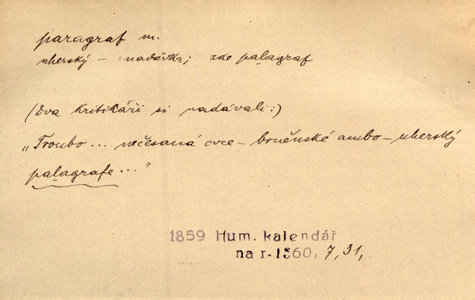 paragraf m.
uherský - = nadávka; zde palagraf
(Dva kritikáři si nadávali:)
"Troubo... nečesaná ovce - brněnské ambo - uherský
palagrafe..."
1859 Hum. kalendář
na r. 1860, 7, 31,